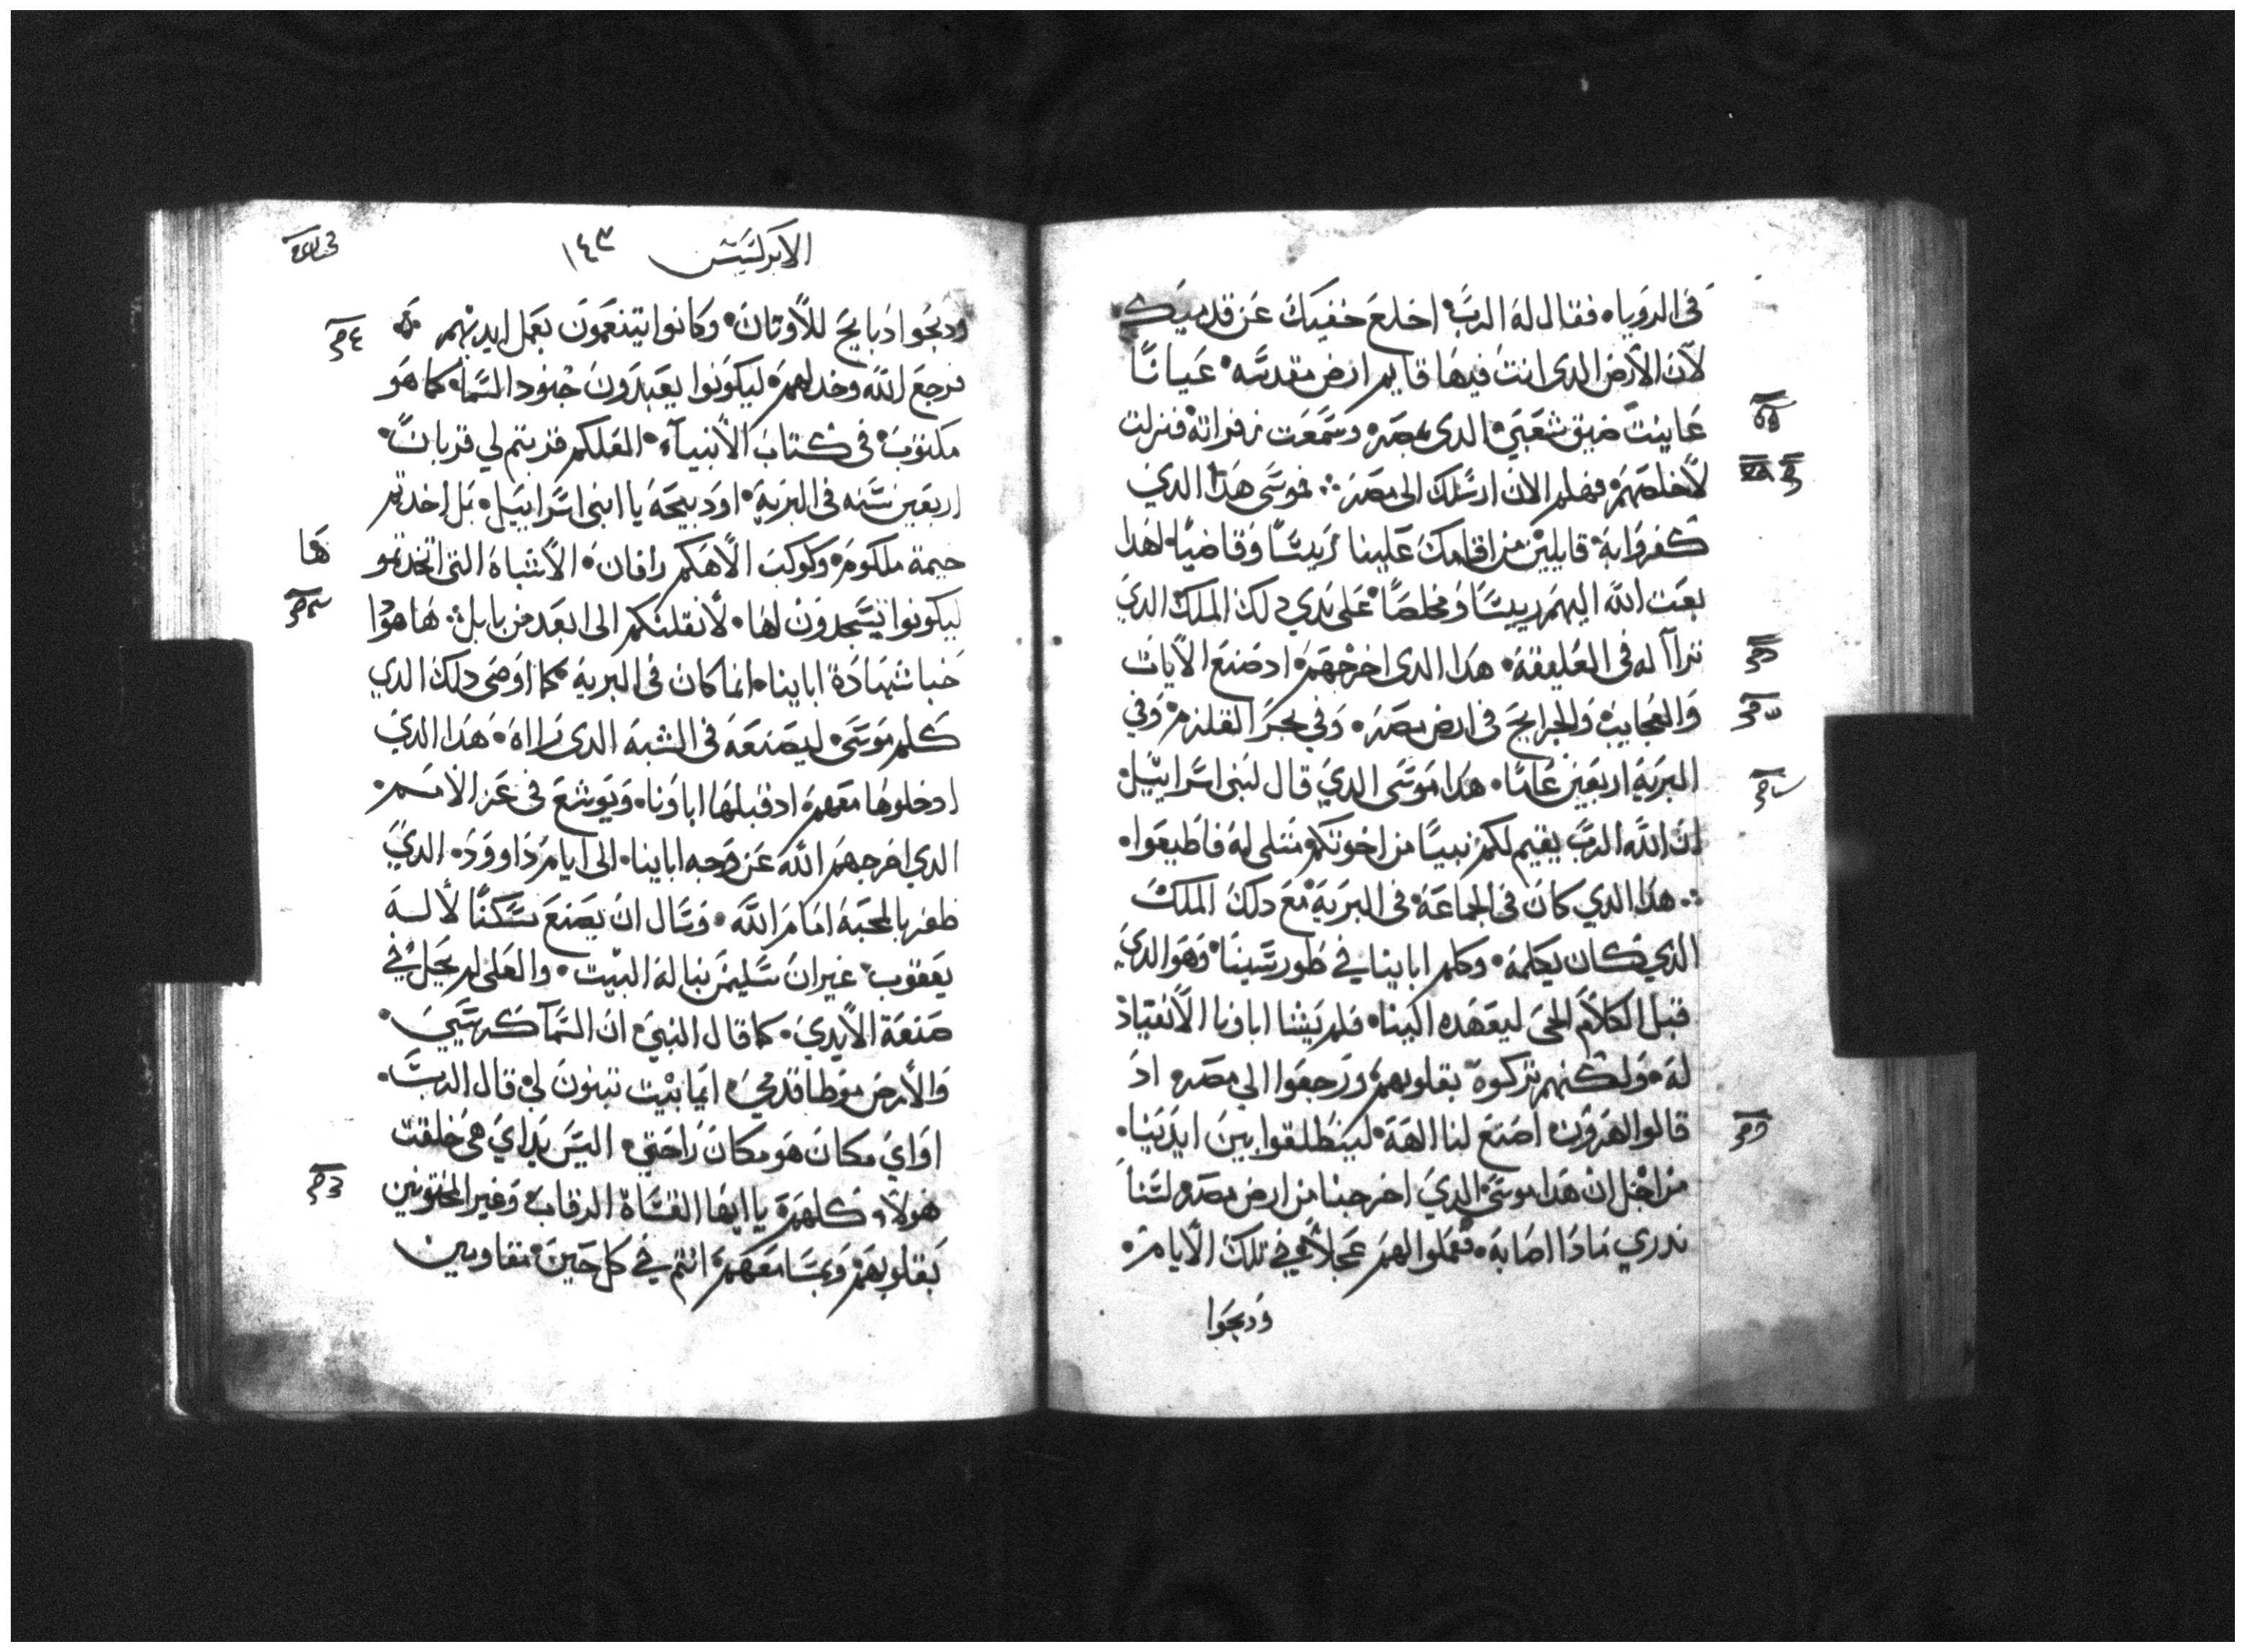 فى الروياء فقال له الرب اخلع خفيك عن قدميك
لان الارض الدى انت فيها قايم ارض مقدسه عيانا
عاينت ضيق شعبي الدى بمصر وسمعت زفراته فنزلت
لاخلصهم فهلم الان ارسلك الى مصر فموسى هدا الدي
كفروا به قايلين من اقامك علينا رييسا وقاضيا لهدا
بعت الله اليهم رييسا ومخلصا على يدي دلك الملك الدي
تراآ له فى العليقة هدا الدى اخرجهم اد صنع الايات
والعجايب والجرايح فى ارض مصر وفي بحر القلزم وفي
البرية اربعين عاما هدا موسى الدي قال لبنى اسراييل
ان الله الرب يقيم لكم نبيا من اخوتكم متلى له فاطيعوا
هدا الدي كان فى الجماعة فى البرية مع دلك الملك
الدي كان يكلمه وكلم اباينا في طور سينا وهو الدي
قبل الكلام الحي ليعهده الينا فلم يشا اباونا الانقياد
له ولكنهم تركوه بقلوبهم ورجعوا الى مصر اد
قالوا لهرون اصنع لنا الهة لينطلقوا بين ايدينا
من اجل ان هدا موسى الدي اخرجنا من ارض مصر لسنا
ندري مادا اصابه فعملوا لهم عجلا في تلك الايام
ودبحوا
الابركسيس ١٤٣
ودبحوا دبايح للاوتان وكانوا يتنعمون بعمل ايديهم
فرجع الله وخدلهم ليكونوا يعبدون جنود السما كما هو
مكتوب فى كتاب الانبياء العلكم قربتم لي قربانا
اربعين سنه فى البرية او دبيحة يا ابنى اسراييل بل اخدتم
خيمة ملكوم وكوكب الاهكم رافان الاشباه التى اتخدتمو
ها
ليكونوا تسجدون لها لانقلنكم الى ابعد من بابل هاهودا
خبا شهادة اباينا انما كان فى البرية كما اوصى دلك الدي
كلم موسى ليصنعه فى الشبه الدى راه هدا الدي
ادخلوها معهم اد قبلها اباونا ويوشع فى عز الامم
الدي اخرجهم الله عن وجه اباينا الى ايام داوود الدي
ظفر بالمحبة امام الله وسال ان يصنع سكنا لاله
يعقوب غير ان سليمن بنا له البيت والعلى لم يحل في
صنعة الايدي كما قال النبي ان السما كرسي
والارض موطا قدمي ايما بيت تبنون لى قال الرب
او اي مكان هو مكان راحتي اليس يداي هى خلقت
هولاء كلهم يا ايها القساة الرقاب وغير المختونين
بقلوبهم وبمسامعهم انتم في كل حين تقاومين